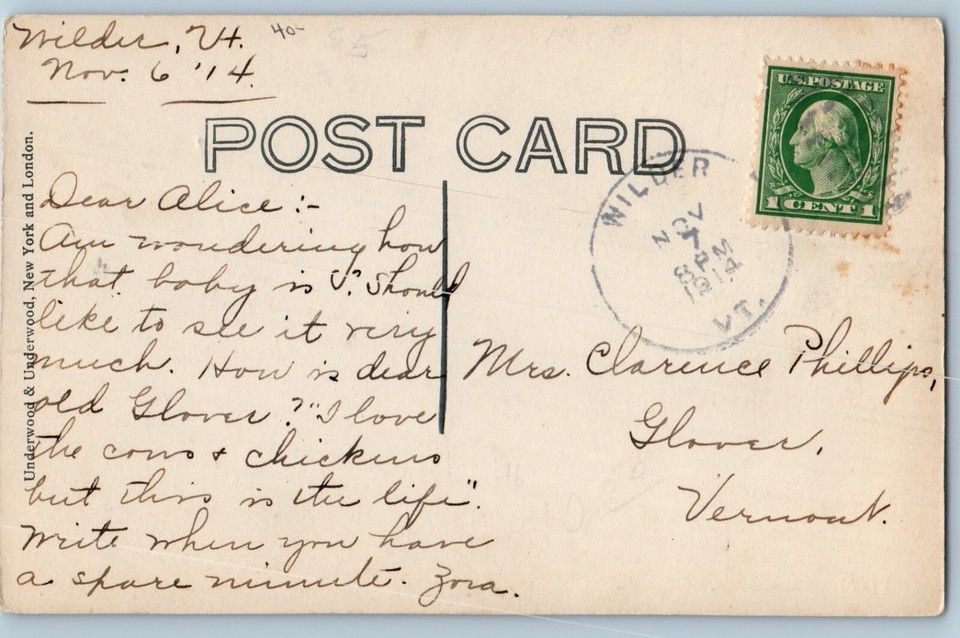 Wilder, Vt.
Nov. 6 '14.
40-
POST CARD
U.S. POSTAGE
1 CENT 1
WILDER
NOV
7
8 PM
1914
VT.
Underwood & Underwood, New York and London.
Dear Alice :-
Am wondering how
that baby is ? Should
like to see it very
much. How is dear
old Glover ? "I love
the cows & chickens
but this is the life".
Write when you have
a spare minute. Zora.
Mrs. Clarence Phillips,
Glover,
Vermont.